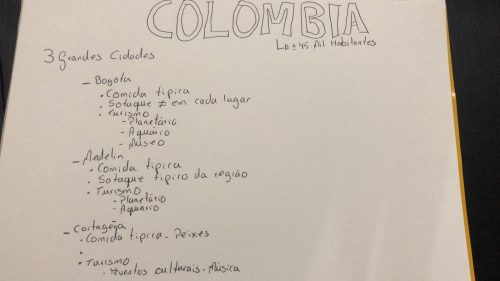 COLOMBIA
↳ ± 45 Mil Habitantes
3 Grandes Cidades
- Bogota
• Comida tipica
• Sotaque ≠ em cada lugar
• Turismo
- Planetário
- Aquário
- Museo
- Medelin
• Comida tipica
• Sotaque tipico da região
• Turismo
- Planetário
- Aquario
- Cartagena
• Comida tipica - Peixes
•
• Turismo
- Eventos culturais - Música